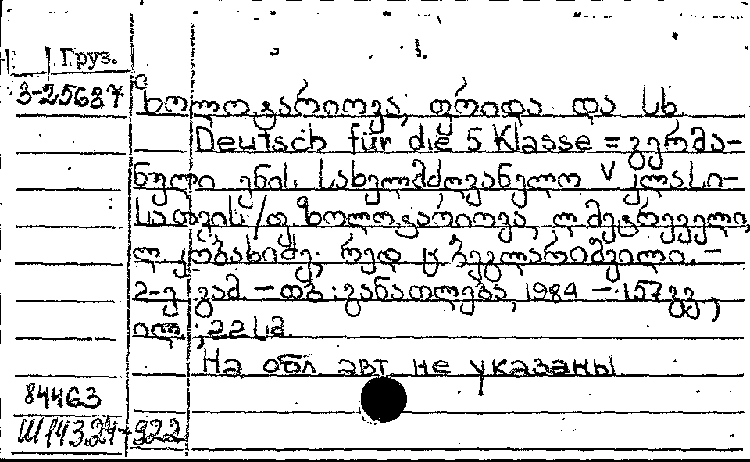 Груз.
3-25687
ზოლოტარიოვა, ფრიდა და სხ.
Deutsch für die 5 Klasse = გერმა-
ნული ენის სახელმძღვანელო V კლასი-
სათვის / ფ. ზოლოტარიოვა, ლ. მეტრეველი,
ლ. კობახიძე; რედ. ც. ბეგლარიშვილი. -
2-ე გამ. - თბ.: განათლება, 1984 - 157 გვ.,
ილ.; 22 სმ.
На обл. авт. не указаны
84463
Ш 143.24-922